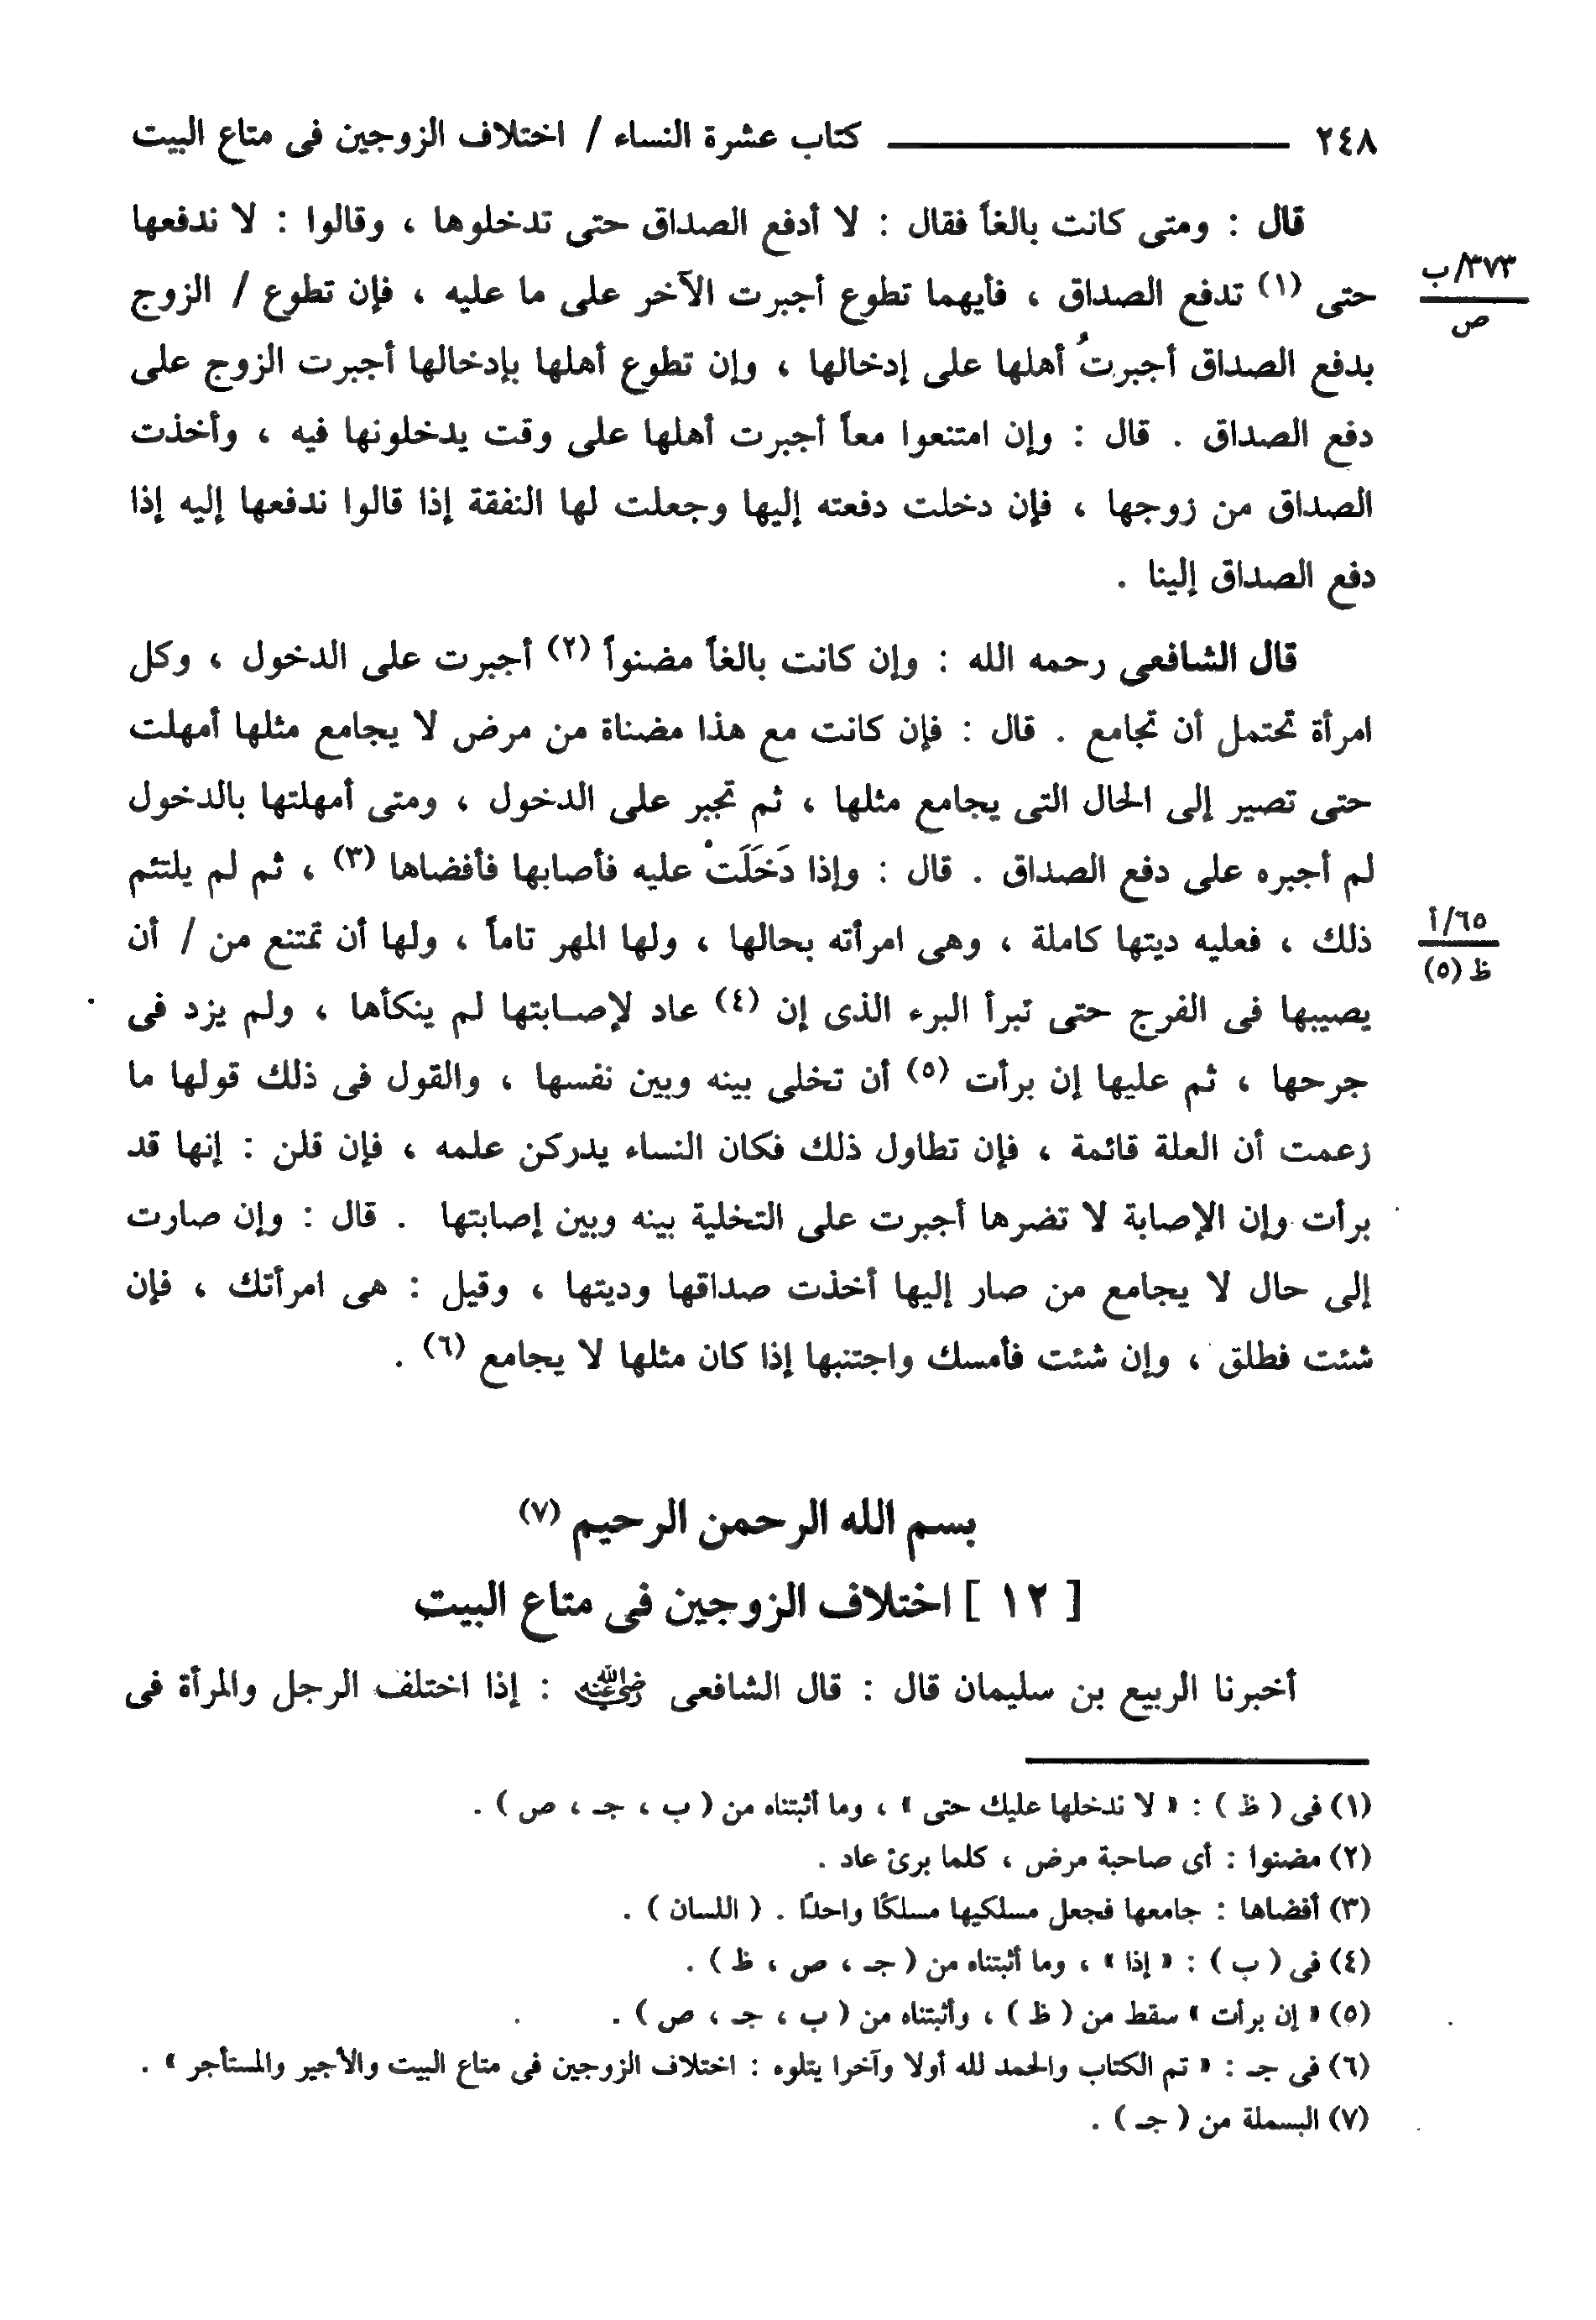 ٢٤٨ ــــــــــــــــ كتاب عشرة النساء / اختلاف الزوجين فى متاع البيت
قال : ومتى كانت بالغاً فقال : لا أدفع الصداق حتى تدخلوها ، وقالوا : لا ندفعها
٣٧٣/ب
ص
حتى (١) تدفع الصداق ، فأيهما تطوع أجبرت الآخر على ما عليه ، فإن تطوع / الزوج
بدفع الصداق أجبرتُ أهلها على إدخالها ، وإن تطوع أهلها بإدخالها أجبرت الزوج على
دفع الصداق . قال : وإن امتنعوا معاً أجبرت أهلها على وقت يدخلونها فيه ، وأخذت
الصداق من زوجها ، فإن دخلت دفعته إليها وجعلت لها النفقة إذا قالوا ندفعها إليه إذا
دفع الصداق إلينا .
قال الشافعى رحمه الله : وإن كانت بالغاً مضنواً (٢) أجبرت على الدخول ، وكل
امرأة تحتمل أن تجامع . قال : فإن كانت مع هذا مضناة من مرض لا يجامع مثلها أمهلت
حتى تصير إلى الحال التى يجامع مثلها ، ثم تجبر على الدخول ، ومتى أمهلتها بالدخول
لم أجبره على دفع الصداق . قال : وإذا دَخَلَتْ عليه فأصابها فأفضاها (٣) ، ثم لم يلتئم
٦٥/أ
ظ (٥)
ذلك ، فعليه ديتها كاملة ، وهى امرأته بحالها ، ولها المهر تاماً ، ولها أن تمتنع من / أن
يصيبها فى الفرج حتى تبرأ البرء الذى إن (٤) عاد لإصـابتها لم ينكأها ، ولم يزد فى
جرحها ، ثم عليها إن برأت (٥) أن تخلى بينه وبين نفسها ، والقول فى ذلك قولها ما
زعمت أن العلة قائمة ، فإن تطاول ذلك فكان النساء يدركن علمه ، فإن قلن : إنها قد
برأت وإن الإصابة لا تضرها أجبرت على التخلية بينه وبين إصابتها . قال : وإن صارت
إلى حال لا يجامع من صار إليها أخذت صداقها وديتها ، وقيل : هى امرأتك ، فإن
شئت فطلق ، وإن شئت فأمسك واجتنبها إذا كان مثلها لا يجامع (٦) .
بسم الله الرحمن الرحيم (٧)
[ ١٢ ] اختلاف الزوجين فى متاع البيت
أخبرنا الربيع بن سليمان قال : قال الشافعى رضي الله عنه : إذا اختلف الرجل والمرأة فى
(١) فى ( ظ ) : « لا ندخلها عليك حتى » ، وما أثبتناه من ( ب ، جـ ، ص ) .
(٢) مضنوا : أى صاحبة مرض ، كلما برئ عاد .
(٣) أفضاها : جامعها فجعل مسلكيها مسلكًا واحدًا . ( اللسان ) .
(٤) فى ( ب ) : « إذا » ، وما أثبتناه من ( جـ ، ص ، ظ ) .
(٥) « إن برأت » سقط من ( ظ ) ، وأثبتناه من ( ب ، جـ ، ص ) .
(٦) فى جـ : « تم الكتاب والحمد لله أولا وآخرا يتلوه : اختلاف الزوجين فى متاع البيت والأجير والمستأجر » .
(٧) البسملة من ( جـ ) .